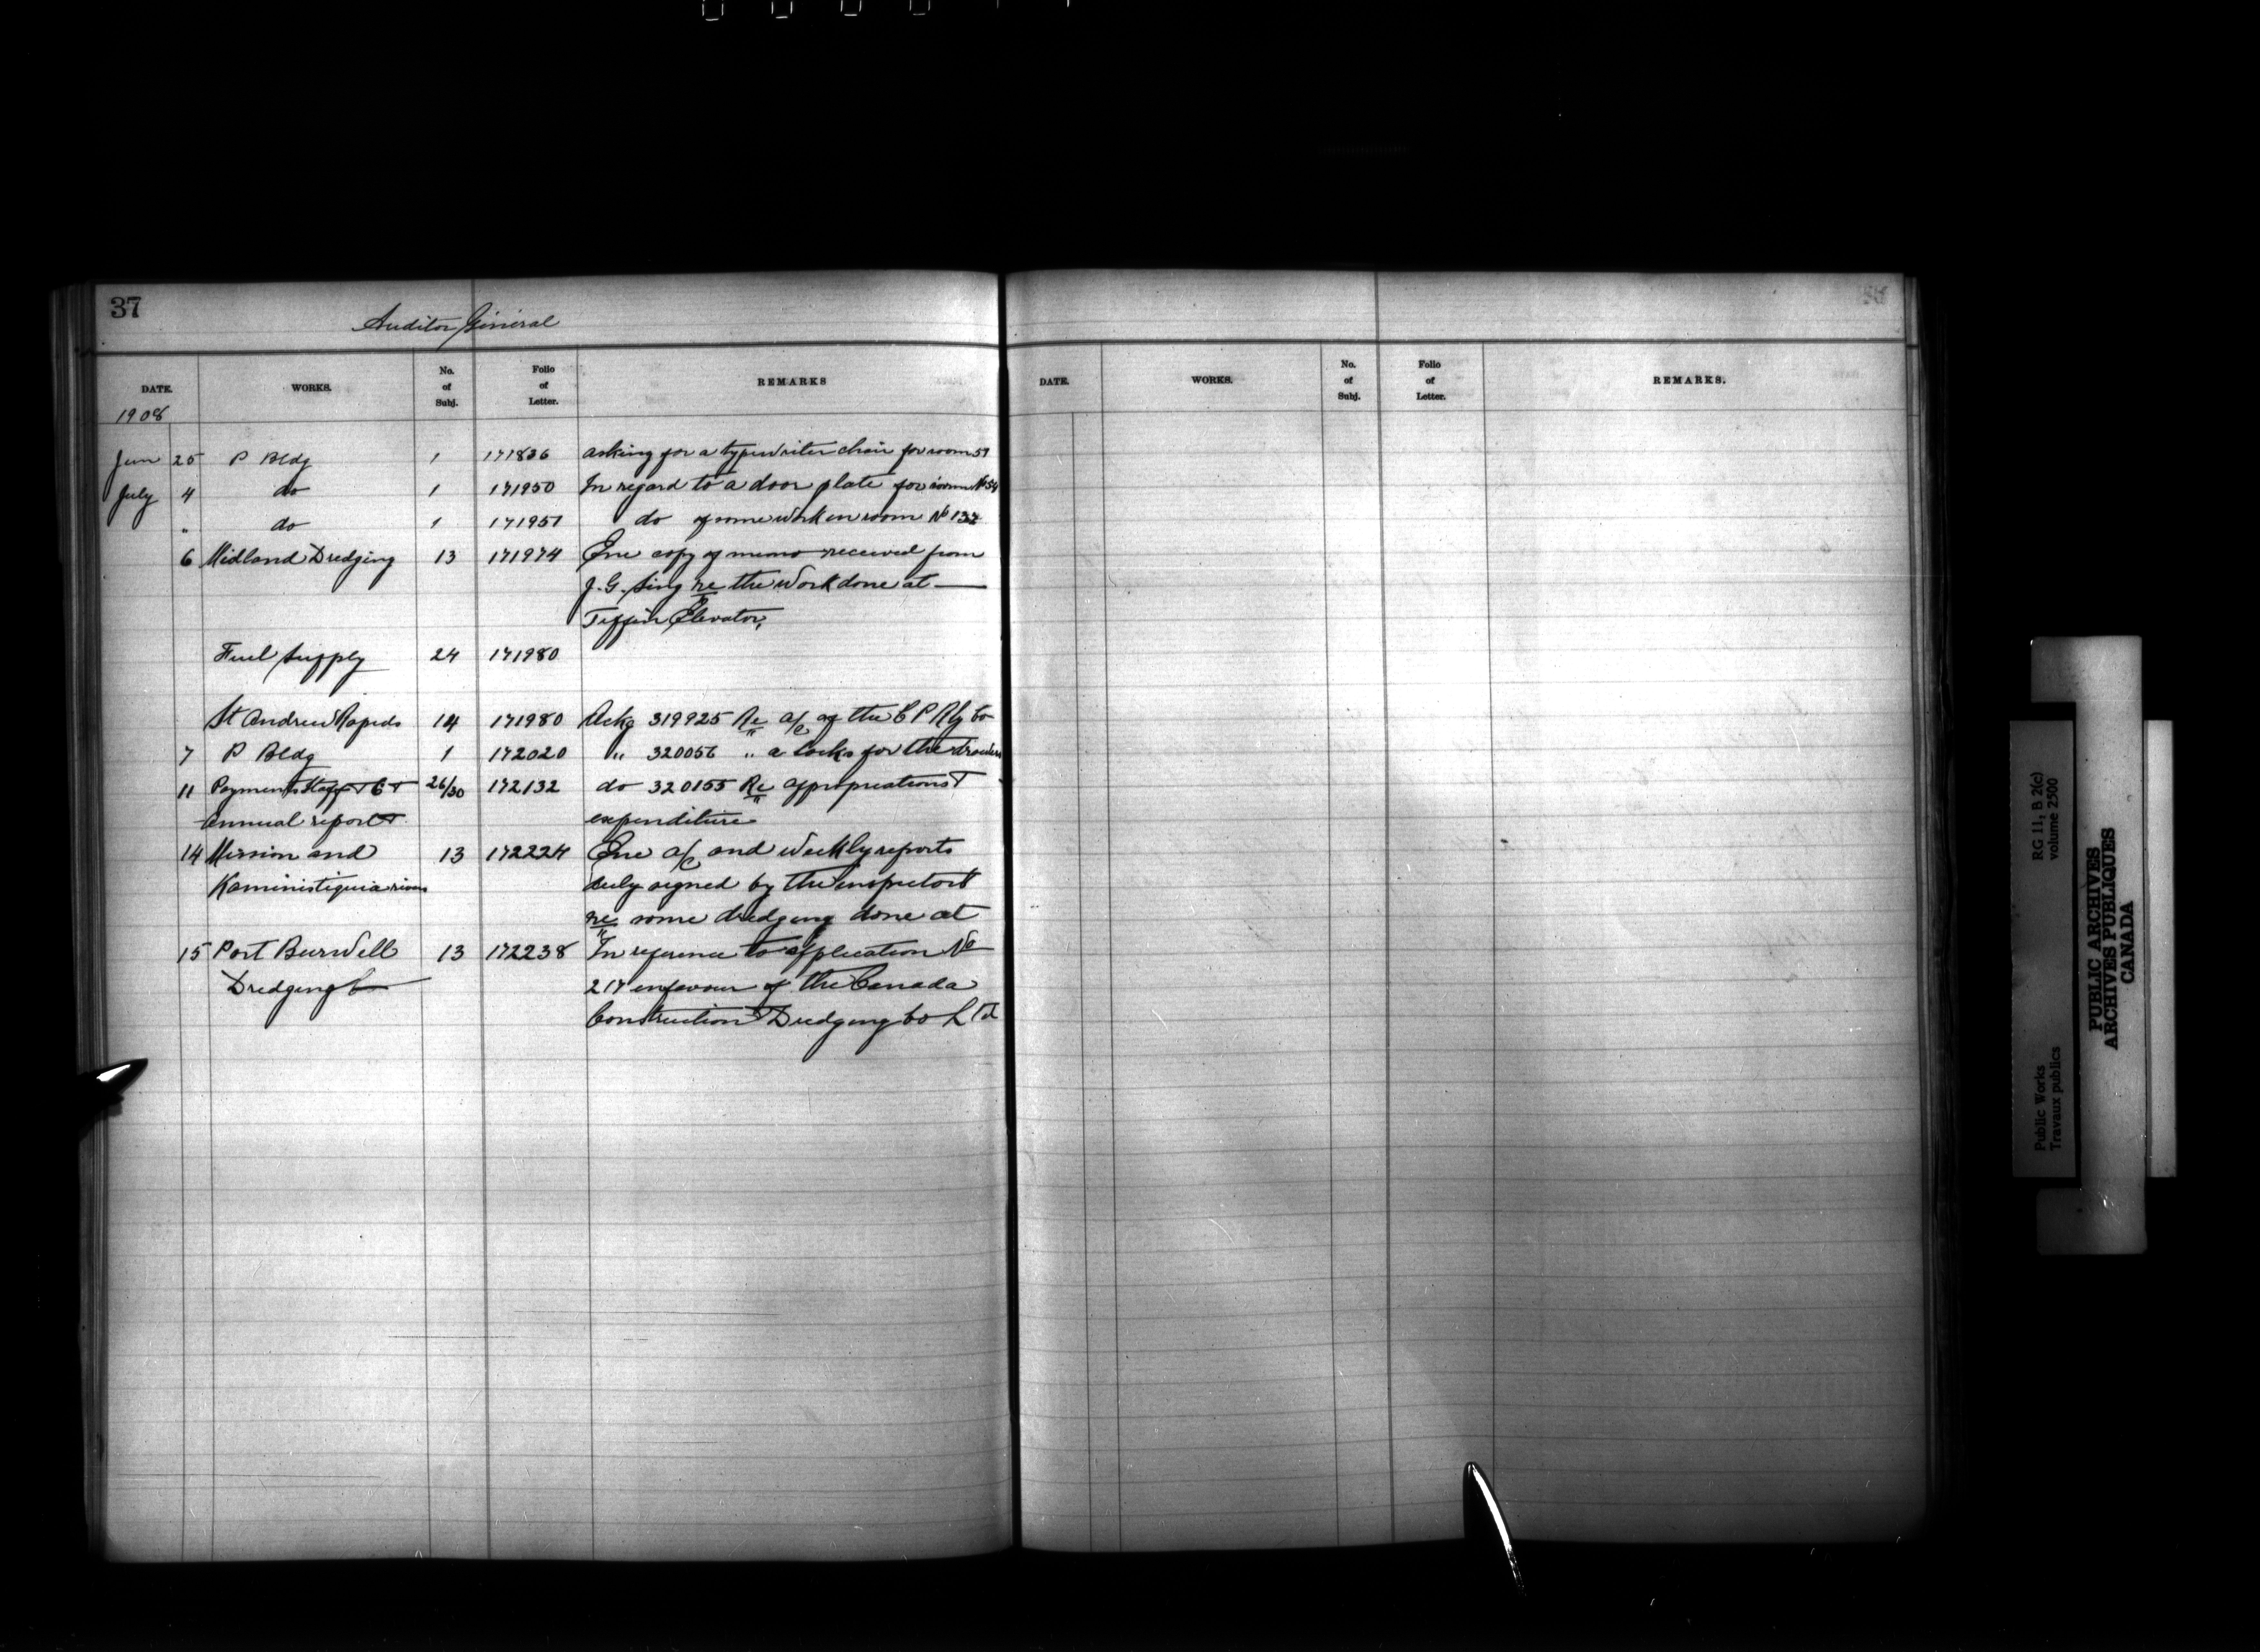 37
Auditor General
DATE. WORKS. No. of Subj. Folio of Letter. REMARKS
1908
Jun 25 P Bldg 1 171836 asking for a typewriter chair for room 57
July 4 do 1 171950 In regard to a door plate for room No 54
" do 1 171951 do of some work in room No 132
6 Midland Dredging 13 171974 Enc copy of memo received from
J. G. Sing re the work done at
Tiffin Elevator,
Fuel Supply 24 171980
St Andrew Rapids 14 171980 Ackg 319925 Re a/c of the C P Rly Co
7 P Bldg 1 172020 " 320056 " a locks for the drawers
11 Payments Staff 26/30 172132 do 320155 Re appropriations +
annual report expenditure
14 Mission and 13 172224 Enc a/c and weekly reports
Kaministiquia rivers duly signed by the inspectors
re some dredging done at
15 Port Burwell 13 172238 In reference to application No
Dredging Co 217 enfavour of the Canada
Construction Dredging Co Ltd
DATE. WORKS. No. of Subj. Folio of Letter. REMARKS.
RG 11, B 2(c)
volume 2500
Public Works
Travaux publics
PUBLIC ARCHIVES
ARCHIVES PUBLIQUES
CANADA